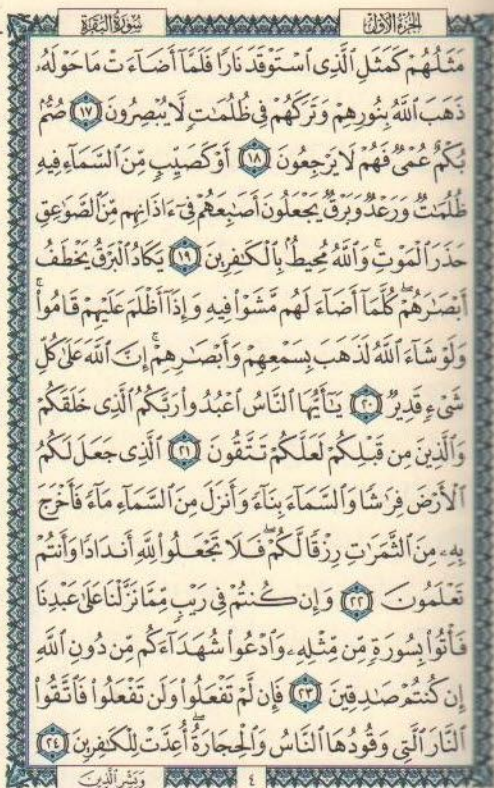 الجزء الأول
سورة البقرة
مَثَلُهُمْ كَمَثَلِ ٱلَّذِى ٱسْتَوْقَدَ نَارًا فَلَمَّآ أَضَآءَتْ مَا حَوْلَهُۥ
ذَهَبَ ٱللَّهُ بِنُورِهِمْ وَتَرَكَهُمْ فِى ظُلُمَٰتٍ لَّا يُبْصِرُونَ ١٧ صُمٌّۢ
بُكْمٌ عُمْىٌ فَهُمْ لَا يَرْجِعُونَ ١٨ أَوْ كَصَيِّبٍ مِّنَ ٱلسَّمَآءِ فِيهِ
ظُلُمَٰتٌ وَرَعْدٌ وَبَرْقٌ يَجْعَلُونَ أَصَٰبِعَهُمْ فِىٓ ءَاذَانِهِم مِّنَ ٱلصَّوَٰعِقِ
حَذَرَ ٱلْمَوْتِ ۚ وَٱللَّهُ مُحِيطٌۢ بِٱلْكَٰفِرِينَ ١٩ يَكَادُ ٱلْبَرْقُ يَخْطَفُ
أَبْصَٰرَهُمْ ۖ كُلَّمَآ أَضَآءَ لَهُم مَّشَوْا۟ فِيهِ وَإِذَآ أَظْلَمَ عَلَيْهِمْ قَامُوا۟ ۚ
وَلَوْ شَآءَ ٱللَّهُ لَذَهَبَ بِسَمْعِهِمْ وَأَبْصَٰرِهِمْ ۚ إِنَّ ٱللَّهَ عَلَىٰ كُلِّ
شَىْءٍ قَدِيرٌ ٢٠ يَٰٓأَيُّهَا ٱلنَّاسُ ٱعْبُدُوا۟ رَبَّكُمُ ٱلَّذِى خَلَقَكُمْ
وَٱلَّذِينَ مِن قَبْلِكُمْ لَعَلَّكُمْ تَتَّقُونَ ٢١ ٱلَّذِى جَعَلَ لَكُمُ
ٱلْأَرْضَ فِرَٰشًا وَٱلسَّمَآءَ بِنَآءً وَأَنزَلَ مِنَ ٱلسَّمَآءِ مَآءً فَأَخْرَجَ
بِهِۦ مِنَ ٱلثَّمَرَٰتِ رِزْقًا لَّكُمْ ۖ فَلَا تَجْعَلُوا۟ لِلَّهِ أَندَادًا وَأَنتُمْ
تَعْلَمُونَ ٢٢ وَإِن كُنتُمْ فِى رَيْبٍ مِّمَّا نَزَّلْنَا عَلَىٰ عَبْدِنَا
فَأْتُوا۟ بِسُورَةٍ مِّن مِّثْلِهِۦ وَٱدْعُوا۟ شُهَدَآءَكُم مِّن دُونِ ٱللَّهِ
إِن كُنتُمْ صَٰدِقِينَ ٢٣ فَإِن لَّمْ تَفْعَلُوا۟ وَلَن تَفْعَلُوا۟ فَٱتَّقُوا۟
ٱلنَّارَ ٱلَّتِى وَقُودُهَا ٱلنَّاسُ وَٱلْحِجَارَةُ ۖ أُعِدَّتْ لِلْكَٰفِرِينَ ٢٤
٤
وَبَشِّرِ الَّذِينَ